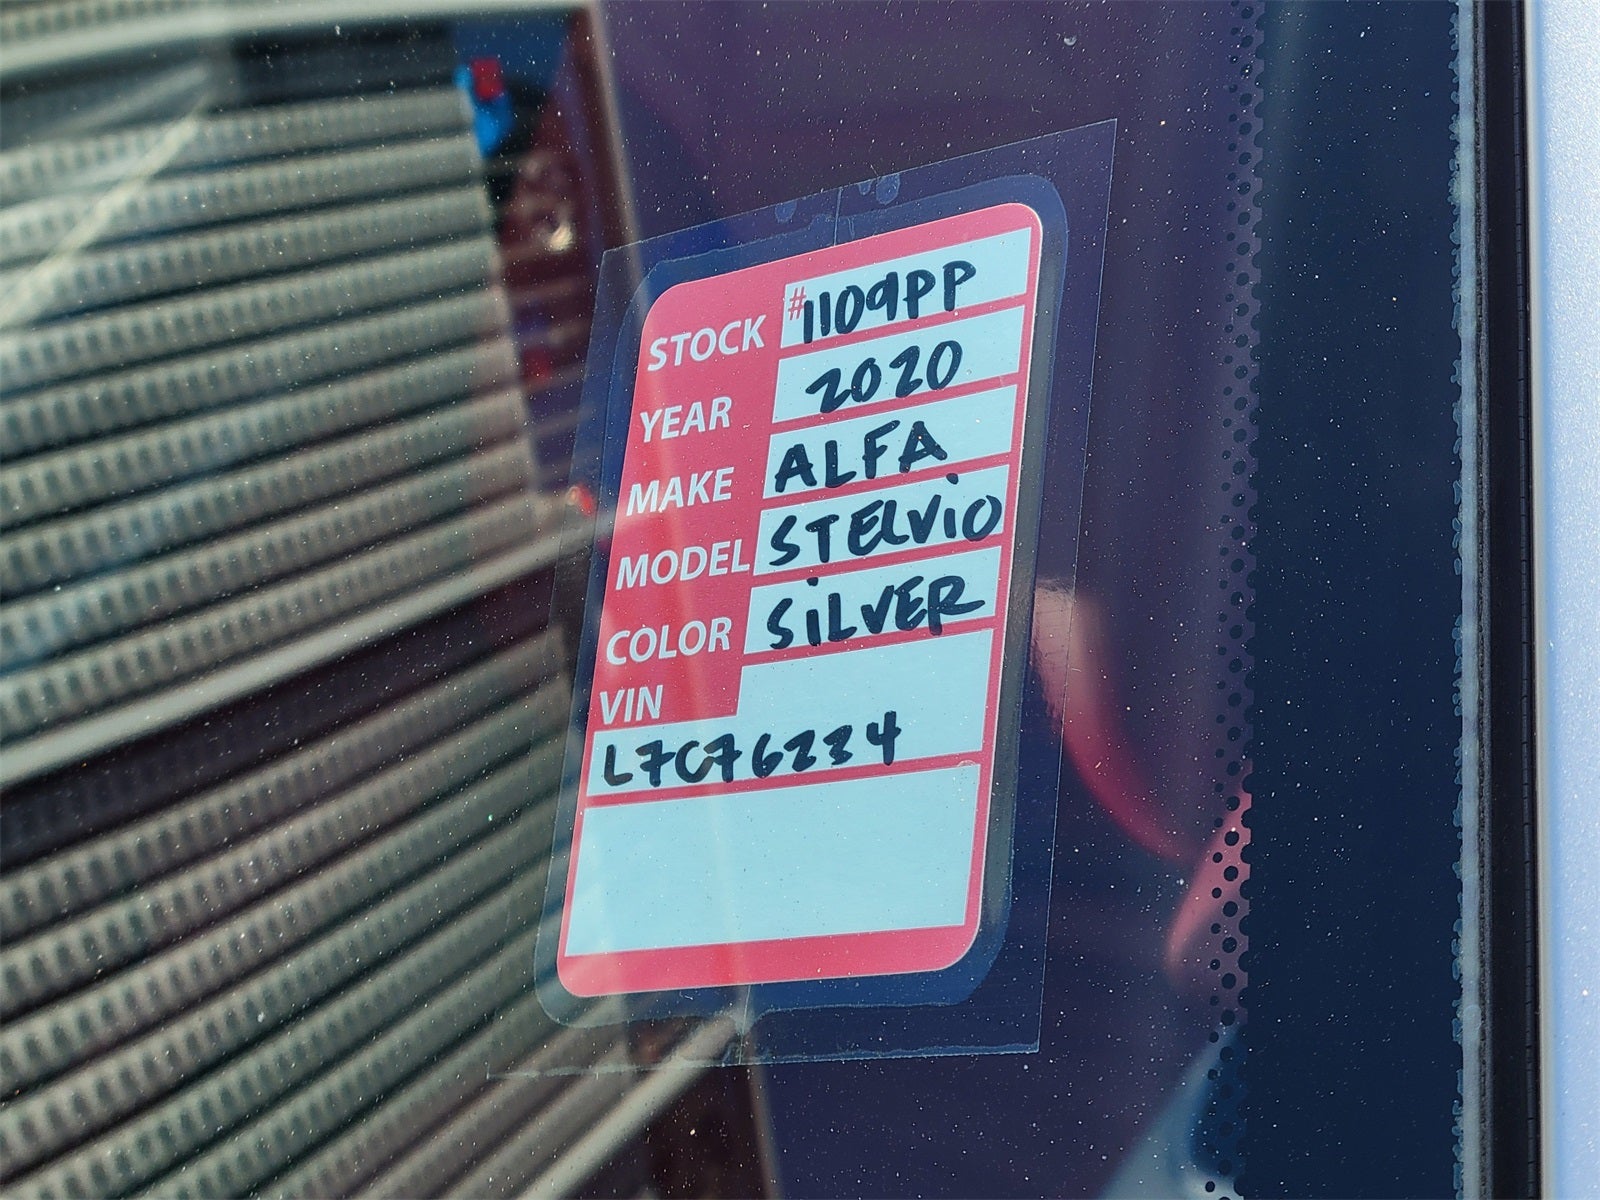 STOCK #1109PP
YEAR 2020
MAKE ALFA
MODEL STELViO
COLOR SiLVER
VIN
L7C76234